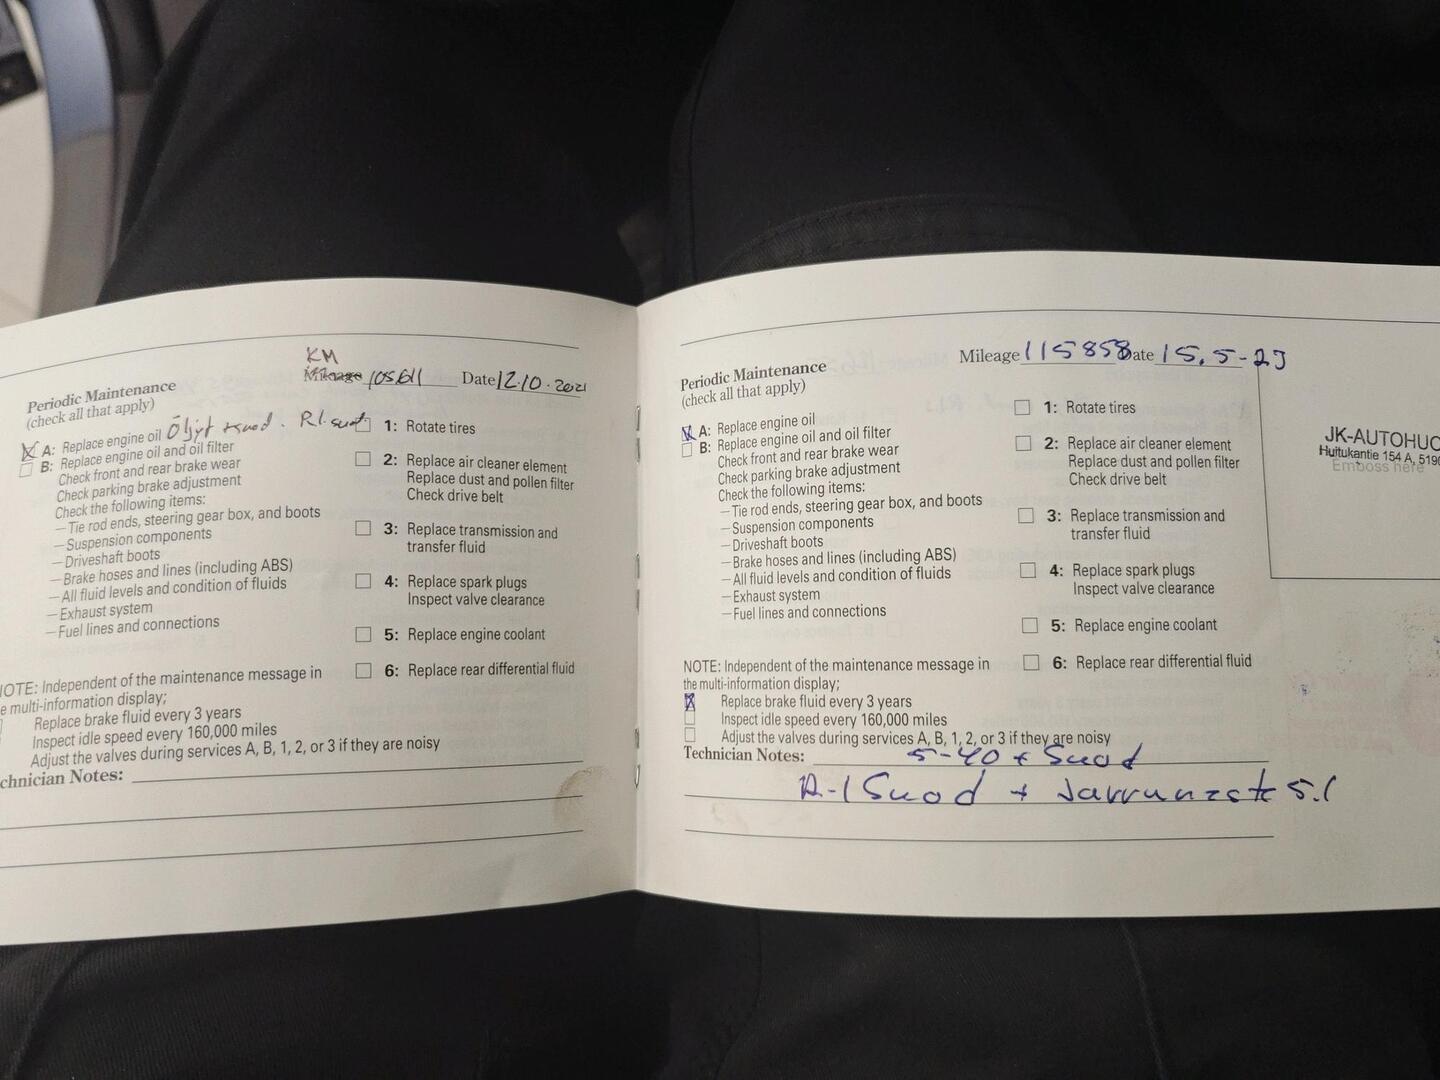 KM
Mileage 105611 Date 12.10.2021
Periodic Maintenance
(check all that apply)
A: Replace engine oil Öljyt +suod. RI.suod
B: Replace engine oil and oil filter
Check front and rear brake wear
Check parking brake adjustment
Check the following items:
–Tie rod ends, steering gear box, and boots
–Suspension components
–Driveshaft boots
–Brake hoses and lines (including ABS)
–All fluid levels and condition of fluids
–Exhaust system
–Fuel lines and connections
1: Rotate tires
2: Replace air cleaner element
Replace dust and pollen filter
Check drive belt
3: Replace transmission and
transfer fluid
4: Replace spark plugs
Inspect valve clearance
5: Replace engine coolant
6: Replace rear differential fluid
OTE: Independent of the maintenance message in
e multi-information display;
Replace brake fluid every 3 years
Inspect idle speed every 160,000 miles
Adjust the valves during services A, B, 1, 2, or 3 if they are noisy
chnician Notes:
Mileage 115858 ate 15.5-23
Periodic Maintenance
(check all that apply)
A: Replace engine oil
B: Replace engine oil and oil filter
Check front and rear brake wear
Check parking brake adjustment
Check the following items:
–Tie rod ends, steering gear box, and boots
–Suspension components
–Driveshaft boots
–Brake hoses and lines (including ABS)
–All fluid levels and condition of fluids
–Exhaust system
–Fuel lines and connections
1: Rotate tires
2: Replace air cleaner element
Replace dust and pollen filter
Check drive belt
3: Replace transmission and
transfer fluid
4: Replace spark plugs
Inspect valve clearance
5: Replace engine coolant
6: Replace rear differential fluid
JK-AUTOHUO
Huitukantie 154 A, 5190
Emboss here
NOTE: Independent of the maintenance message in
the multi-information display;
Replace brake fluid every 3 years
Inspect idle speed every 160,000 miles
Adjust the valves during services A, B, 1, 2, or 3 if they are noisy
Technician Notes: 5-40 + Suod
R-I Suod + Jarrunest 5.1